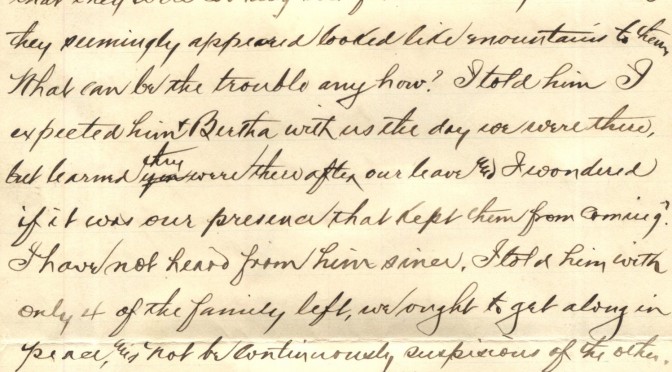 that they were
they seemingly appeared looked like mountains to them
What can be the trouble any how? I told him I
expected him & Bertha with us the day we were there,
but learned they were there after our leave and I wondered
if it was our presence that kept them from coming?
I have not heard from him since. I told him with
only 4 of the family left, we ought to get along in
peace, and not be continuously suspicious of the other.